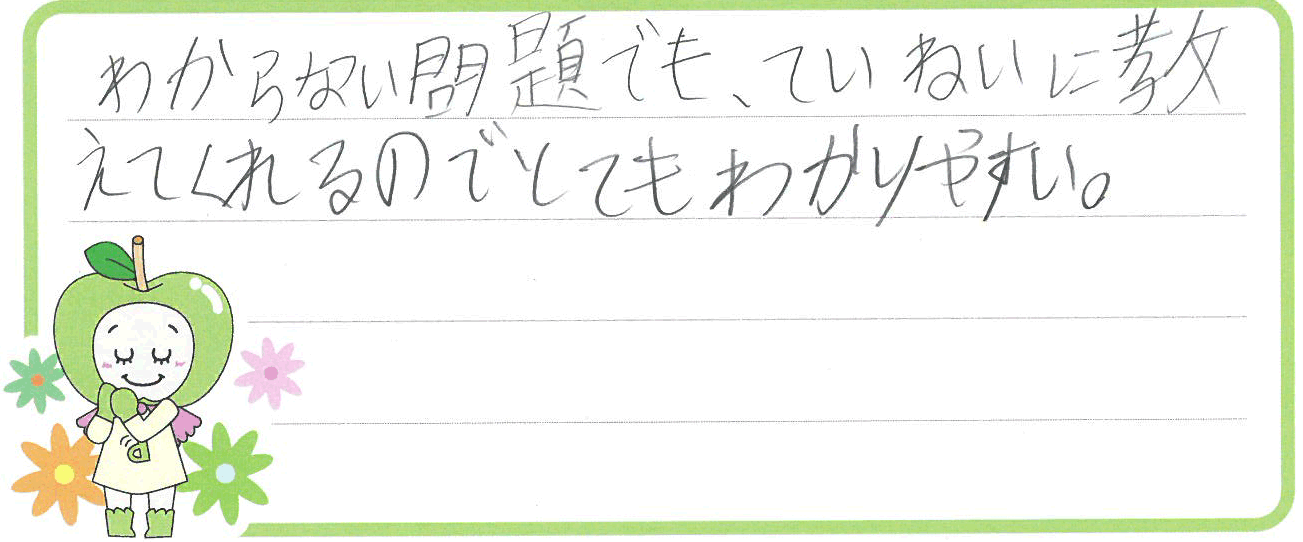 わからない問題でも、ていねいに教
えてくれるのでとてもわかりやすい。